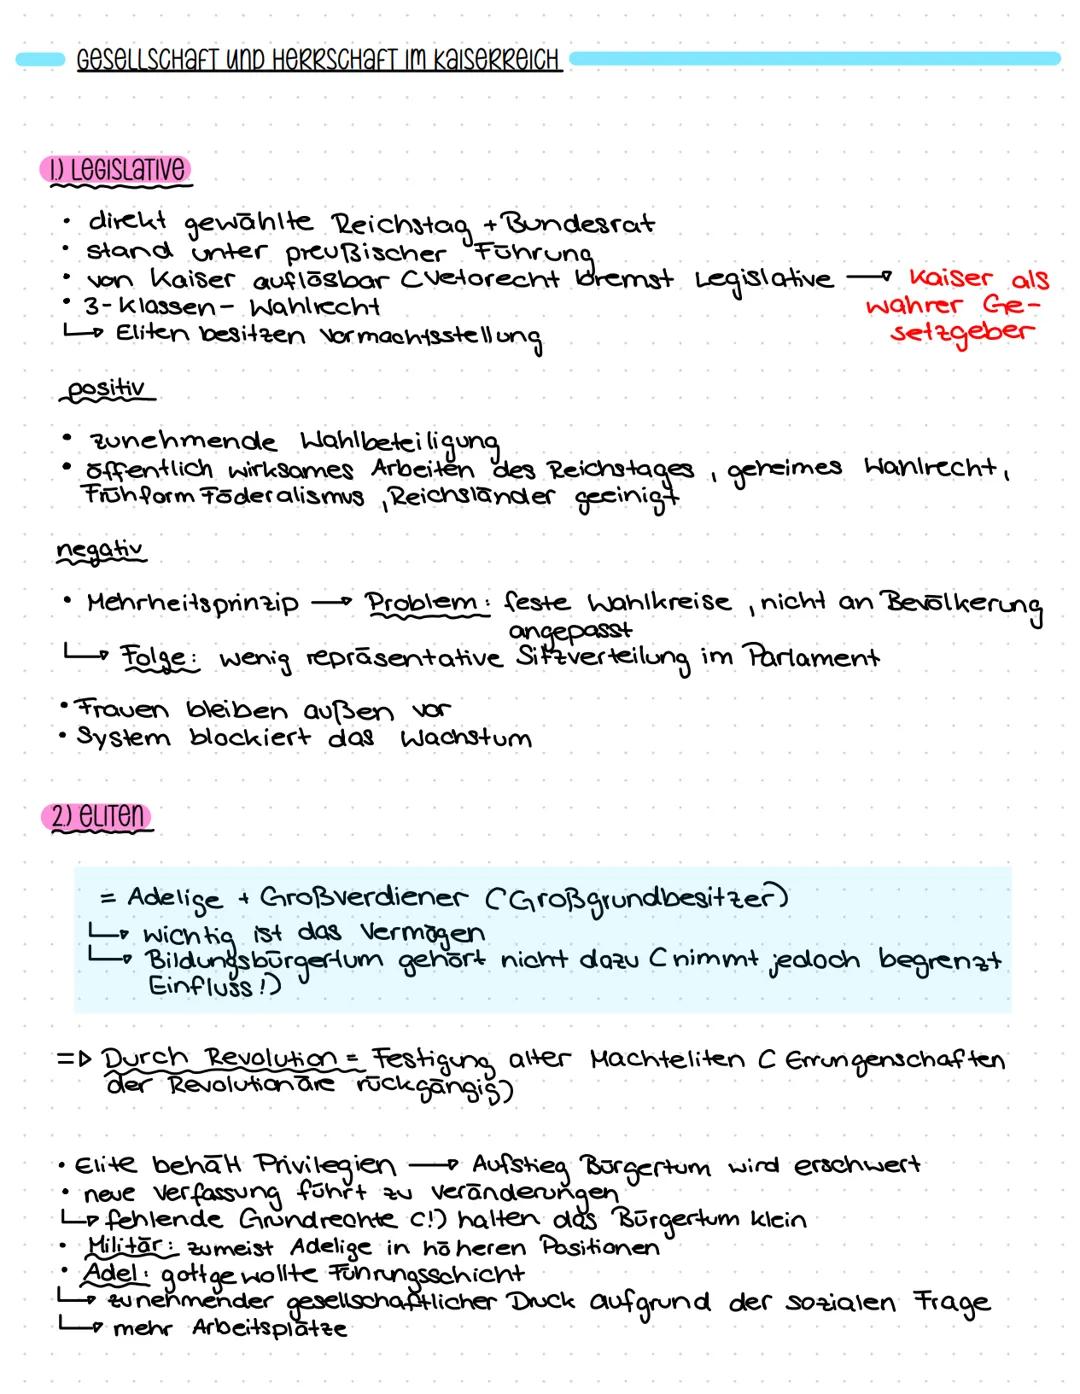 GESELLSCHAFT UND HERRSCHAFT IM KAISERREICH
1.) LEGISLATIVE
• direkt gewählte Reichstag + Bundesrat
• stand unter preußischer Führung
• von Kaiser auflösbar (Vetorecht bremst Legislative → Kaiser als
• 3-Klassen-Wahlrecht wahrer Ge-
↳ Eliten besitzen Vormachtsstellung setzgeber
positiv
• zunehmende Wahlbeteiligung
• öffentlich wirksames Arbeiten des Reichstages, geheimes Wahlrecht,
Frühform Föderalismus, Reichsländer geeinigt
negativ
• Mehrheitsprinzip → Problem: feste Wahlkreise, nicht an Bevölkerung
angepasst
↳ Folge: wenig repräsentative Sitzverteilung im Parlament
• Frauen bleiben außen vor
• System blockiert das Wachstum
2.) ELITEN
= Adelige + Großverdiener (Großgrundbesitzer)
↳ wichtig ist das Vermögen
↳ Bildungsbürgertum gehört nicht dazu (nimmt jedoch begrenzt
Einfluss!)
=▷ Durch Revolution = Festigung alter Machteliten (Errungenschaften
der Revolutionäre rückgängig)
• Elite behält Privilegien → Aufstieg Bürgertum wird erschwert
• neue Verfassung führt zu Veränderungen
↳ fehlende Grundrechte (!) halten das Bürgertum klein
• Militär: zumeist Adelige in höheren Positionen
• Adel: gottgewollte Führungsschicht
↳ zunehmender gesellschaftlicher Druck aufgrund der sozialen Frage
↳ mehr Arbeitsplätze